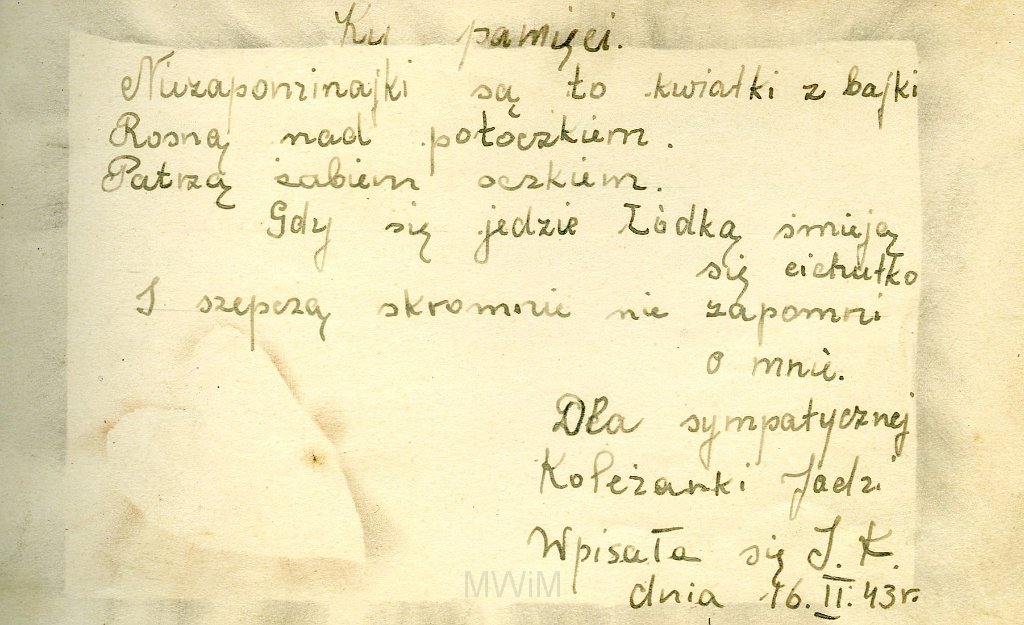 Ku pamięci.
Niezapominajki są to kwiatki z bajki
Rosną nad potoczkiem.
Patrzą żabiem oczkiem.
Gdy się jedzie łódką śmieją
się cichutko
I szepczą skromnie nie zapomni
o mnie.
Dla sympatycznej
Koleżanki Jadzi
Wpisała się J. K.
dnia 16. II. 43 r.
MWiM